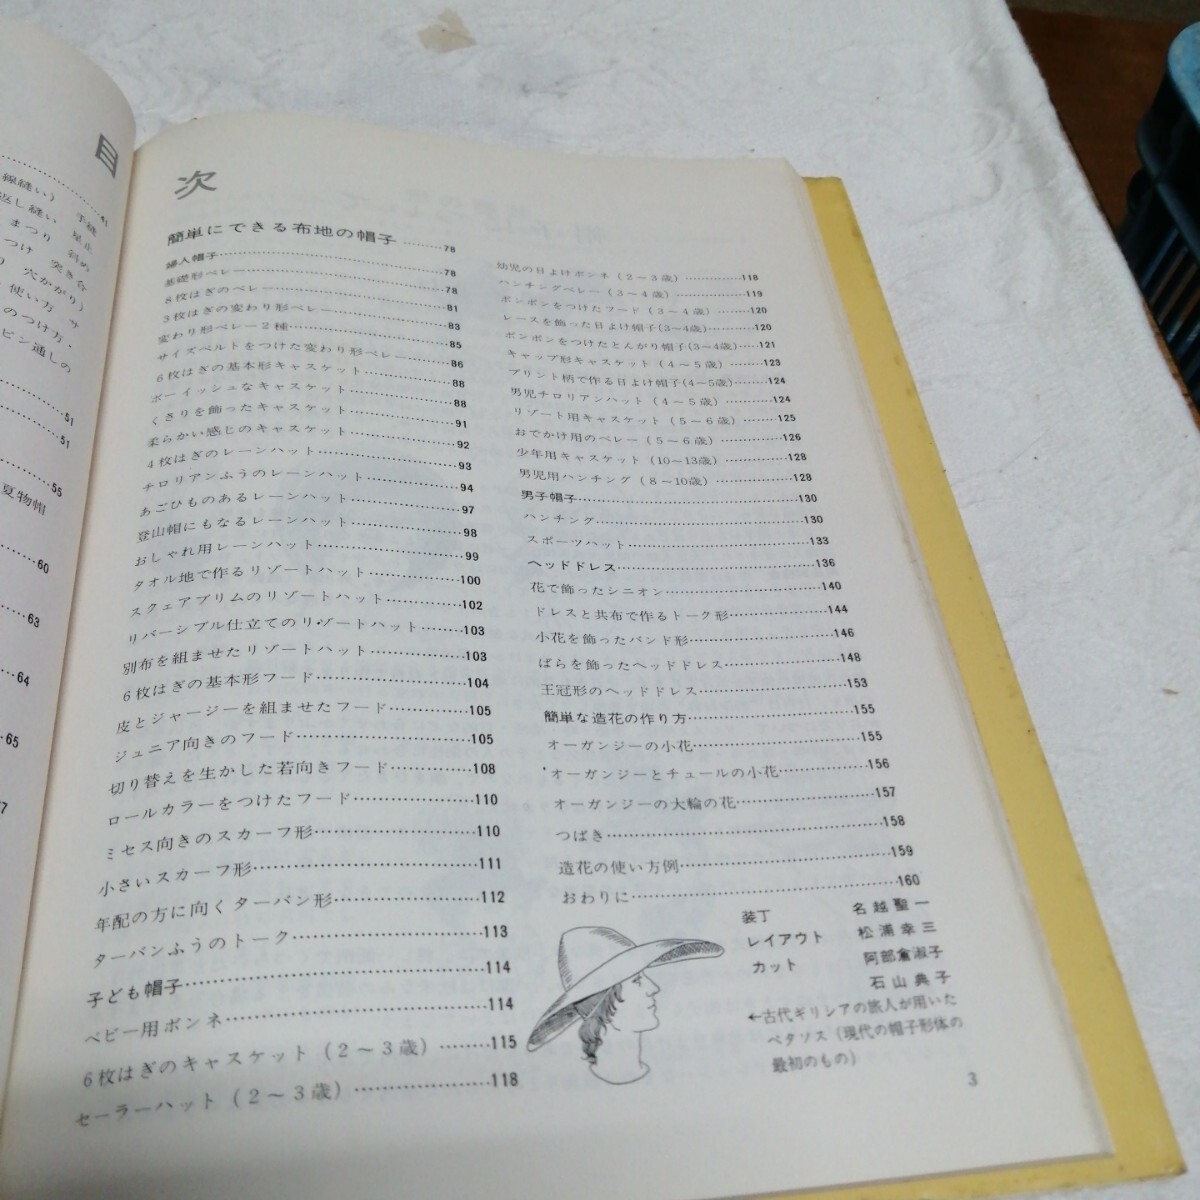 目
線縫い） 手縫
返し縫い 星止
まつり 斜め
つけ 突き合
り 穴かがり）
使い方 サ
のつけ方・
ピン通しの
41
51
51
55
夏物帽
60
63
64
65
次
簡単にできる布地の帽子………78
婦人帽子………78
基礎形ベレー………78
8枚はぎのベレー………81
3枚はぎの変わり形ベレー………83
変わり形ベレー2種………85
サイズベルトをつけた変わり形ベレー………86
6枚はぎの基本形キャスケット………88
ボーイッシュなキャスケット………88
くさりを飾ったキャスケット………91
柔らかい感じのキャスケット………92
4枚はぎのレーンハット………93
チロリアンふうのレーンハット………94
あごひものあるレーンハット………97
登山帽にもなるレーンハット………98
おしゃれ用レーンハット………99
タオル地で作るリゾートハット………100
スクェアブリムのリゾートハット………102
リバーシブル仕立てのリゾートハット………103
別布を組ませたリゾートハット………103
6枚はぎの基本形フード………104
皮とジャージーを組ませたフード………105
ジュニア向きのフード………105
切り替えを生かした若向きフード………108
ロールカラーをつけたフード………110
ミセス向きのスカーフ形………110
小さいスカーフ形………111
年配の方に向くターバン形………112
ターバンふうのトーク………113
子ども帽子………114
ベビー用ボンネ………114
6枚はぎのキャスケット（2～3歳）………115
セーラーハット（2～3歳）………118
幼児の日よけボンネ（2～3歳）………118
ハンチングベレー（3～4歳）………119
ポンポンをつけたフード（3～4歳）………120
レースを飾った日よけ帽子(3～4歳)………120
ポンポンをつけたとんがり帽子(3～4歳)………121
キャップ形キャスケット（4～5歳）………123
プリント柄で作る日よけ帽子(4～5歳)………124
男児チロリアンハット（4～5歳）………124
リゾート用キャスケット（5～6歳）………125
おでかけ用のベレー（5～6歳）………126
少年用キャスケット（10～13歳）………128
男児用ハンチング（8～10歳）………128
男子帽子………130
ハンチング………130
スポーツハット………133
ヘッドドレス………136
花で飾ったシニオン………140
ドレスと共布で作るトーク形………144
小花を飾ったバンド形………146
ばらを飾ったヘッドドレス………148
王冠形のヘッドドレス………153
簡単な造花の作り方………155
オーガンジーの小花………155
オーガンジーとチュールの小花………156
オーガンジーの大輪の花………157
つばき………158
造花の使い方例………159
おわりに………160
装丁 名越聖一
レイアウト 松浦幸三
カット 阿部倉淑子
石山典子
←古代ギリシアの旅人が用いた
ペタソス（現代の帽子形体の
最初のもの）
3